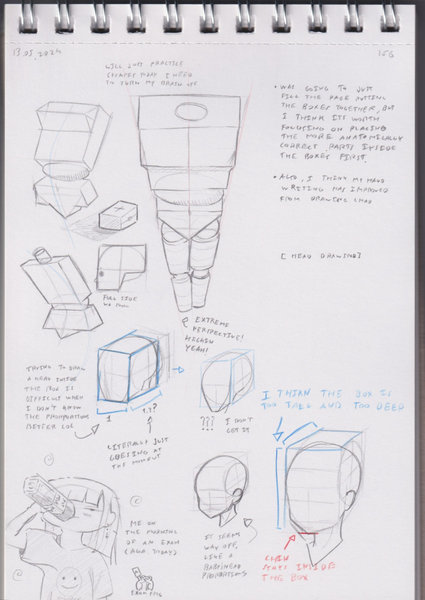 13.05.2024
156
WILL JUST PRACTICE
SHAPES TODAY I NEED
TO TURN MY BRAIN OFF
• WAS GOING TO JUST
FILL THE PAGE PUTTING
THE BOXES TOGETHER, BUT
I THINK ITS WORTH
FOCUSING ON PLACING
THE MORE ANATOMICALLY
CORRECT PARTS INSIDE
THE BOXES FIRST.
• ALSO, I THINK MY HAND
WRITING HAS IMPROVED
FROM DRAWING LMAO
[HEAD DRAWING]
FULL SIDE
EXTREME
PERSPECTIVE!
YEAH!
TRYING TO DRAW
A HEAD INSIDE
THE BOX IS
DIFFICULT WHEN
I DON'T KNOW
THE PROPORTIONS
BETTER LOL
1
???
LITERALLY JUST
GUESSING AT
THE MOMENT
???
I DON'T
GET IT
I THINK THE BOX IS
TOO TALL AND TOO DEEP
ME ON
THE MORNING
OF AN EXAM
(ALSO TODAY)
IT SEEMS
WAY OFF,
LIKE A
PROPORTIONS
CHIN
STAYS INSIDE
THE BOX